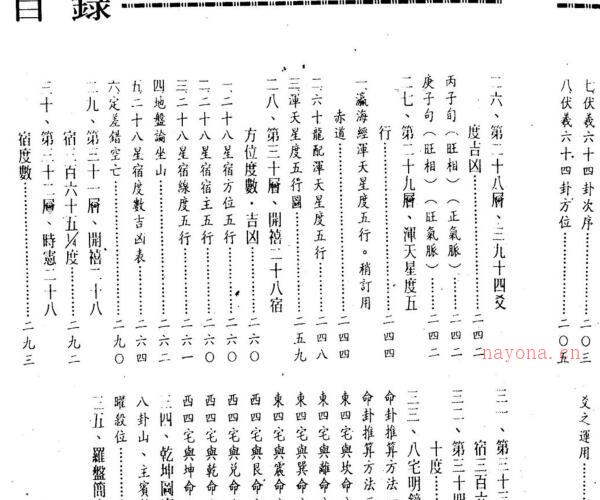 目錄
七伏羲六十四卦次序……二0三
八伏羲六十四卦方位……二0五
二六、第二十八層、三九十四爻
度吉凶……二四二
丙子旬(旺相)(正氣脈)……二四二
庚子旬(旺相)(旺氣脈)……二四二
二七、第二十九層、渾天星度五
行……二四四
一瀛海經渾天星度五行。稍訂用
赤道……二四四
二六十龍配渾天星度五行……二四八
三渾天星度五行圖……二五九
二八、第三十層、開禧二十八宿
方位度數·吉凶……二六0
一二十八星宿方位五行……二六0
二二十八星宿宿主五行……二六0
三二十八星宿線度五行……二六一
四地盤論坐山……二六二
五二十八星宿度數吉凶表……二六四
六定差錯空亡……二九0
二九、第三十一層、開禧二十八
宿三百六十五¼度……二九二
三十、第三十二層、時憲二十八
宿度數……二九三
爻之運用
三一、第三十三
宿三百
三二、第三十四
十度
三三、八宅明鏡
命卦推算方法
命卦推算方法
東四宅與坎命
東四宅與離命
東四宅與震命
東四宅與巽命
西四宅與艮命
西四宅與兌命
西四宅與乾命
西四宅與坤命
三四、乾坤圖
八卦山、主賓
曜殺位
三五、羅盤簡
nayona.cn